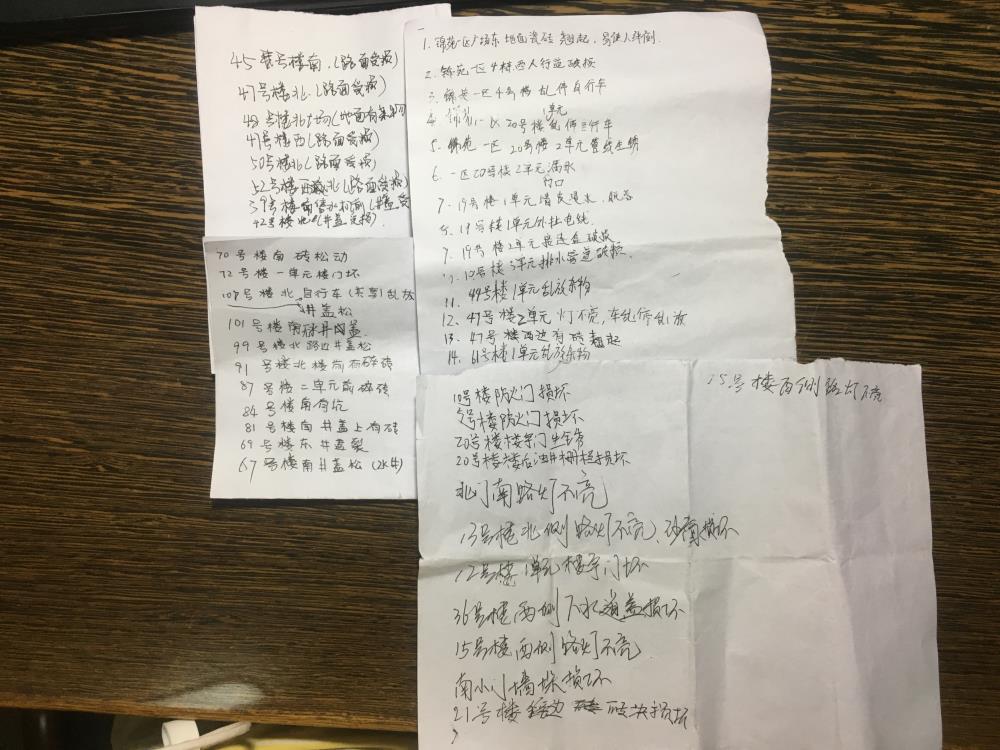 45号楼南(路面受损)
47号楼北(路面受损)
48号楼北广场(地面有杂物)
49号楼西(路面受损)
50号楼北(路面受损)
52号楼西北(路面受损)
59号楼南售水机南(井盖受
42号楼北(井盖受损)
70号楼南 砖松动
72号楼一单元楼门坏
107号楼北 自行车(共享)乱放
井盖松
101号楼南 井盖
99号楼北路边井盖松
91号楼北楼前有碎砖
87号楼二单元前碎砖
84号楼南有坑
81号楼南井盖上有砖
69号楼东井盖裂
67号楼南井盖松(水井)
1. 锦苑一区广场东地面瓷砖翘起,易使人绊倒.
2. 锦苑一区4栋西人行道破损
3. 锦苑一区4号楼乱停自行车
4. 锦苑一区20号楼1单元乱停自行车
5. 锦苑一区20号楼2单元管线生锈
6. 一区20号楼2单元门口漏水
7. 19号楼1单元墙皮浸水、脱落
8. 19号楼1单元外挂电线.
9. 19号楼2单元 破损
10. 19号楼3单元排水管道破损.
11. 49号楼1单元乱放杂物
12. 47号楼2单元灯不亮,车乱停乱放
13. 47号楼西边有砖翘起
14. 61号楼1单元乱放杂物
10号楼防火门损坏
5号楼防火门损坏
20号楼楼宇门生锈
20号楼楼后油井栅栏损坏
北门南路灯不亮
13号楼北侧路灯不亮、 损坏
12号楼1单元楼宇门坏
36号楼西侧下水道盖损坏
15号楼西侧路灯不亮
南小门墙垛损坏
21号楼 砖块损坏
15号楼西侧路灯不亮